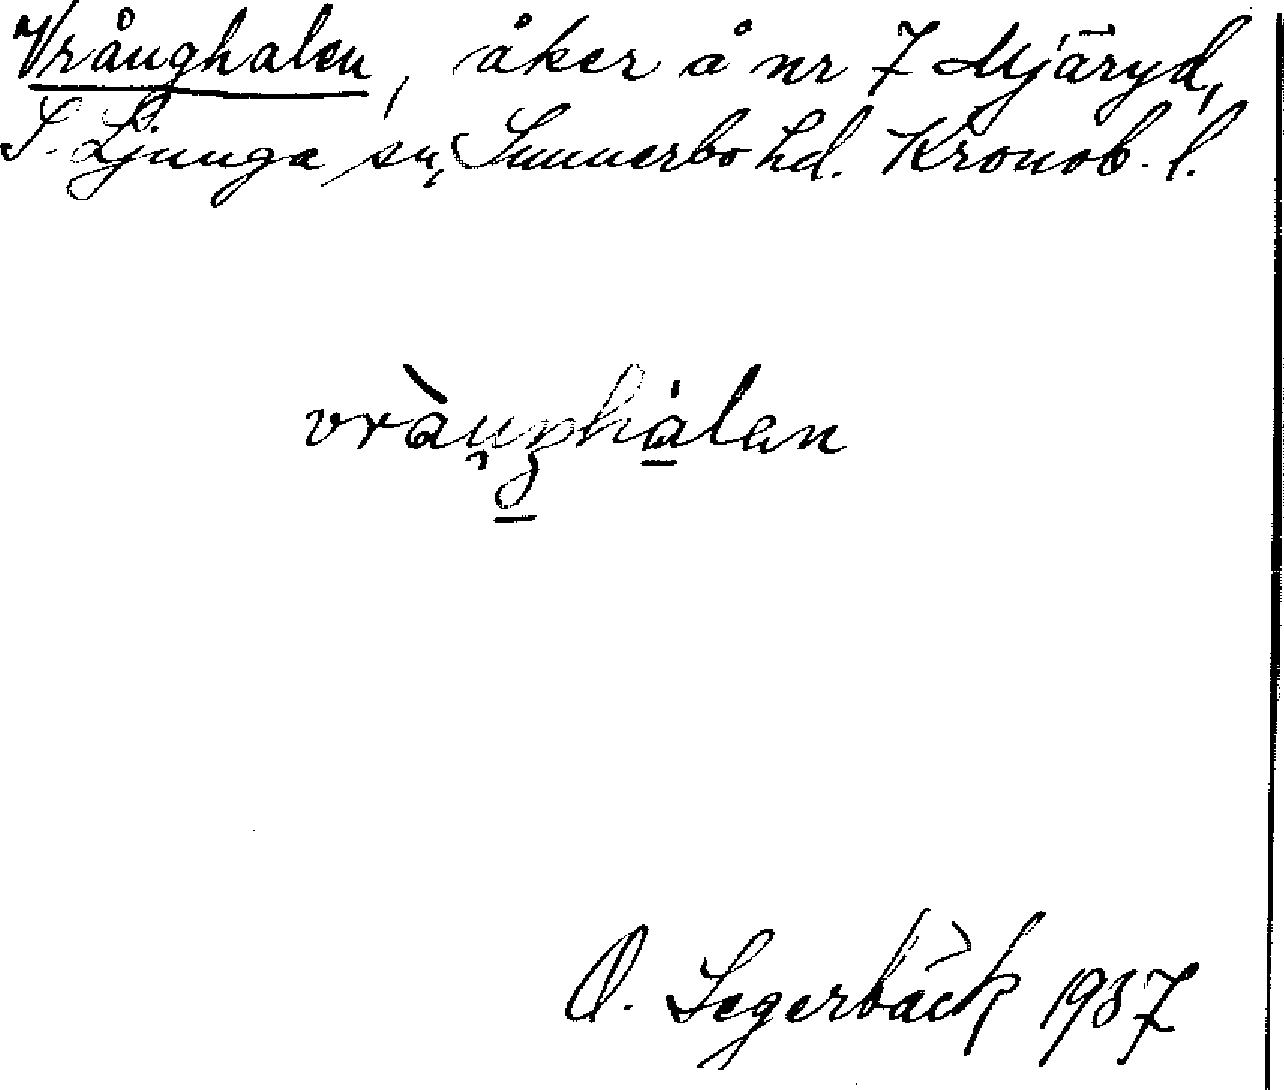 Vrånghalen, åker å nr 7 Mjäryd,
S. Ljunga sn, Sunnerbo hd. Kronob. l.
O. Segerbäck 1937